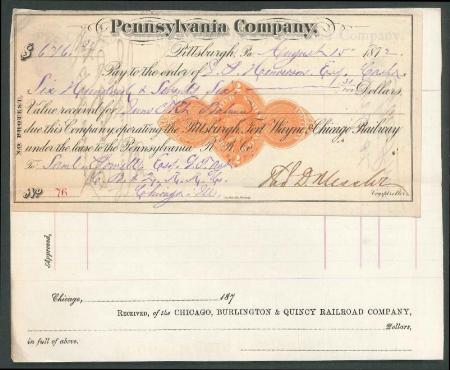 Pennsylvania Company.
$ 676
Pittsburgh, Pa. August 15 1872.
Pay to the order of Esq. Cashr
Six Hundred & Seventy Six Dollars.
Value received for June
due this Company operating the Pittsburgh, Fort Wayne & Chicago Railway
under the lease to the Pennsylvania R. R. Co.
NO PROTEST.
To Esq.
Chicago Ill.
No 76
Thos D Messler
Comptroller
Approved,
Chicago, 187
RECEIVED, of the CHICAGO, BURLINGTON & QUINCY RAILROAD COMPANY,
Dollars,
in full of above.